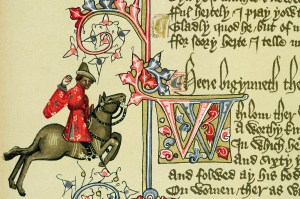 ffful hertely I pray yow
Gladly quod he but of m
ffor soory herte I telle m
Heere bigynneth the
Whilom ther
A worthy kny
In which he
And sixty
And folwed ay his bod
On wommen ther as w